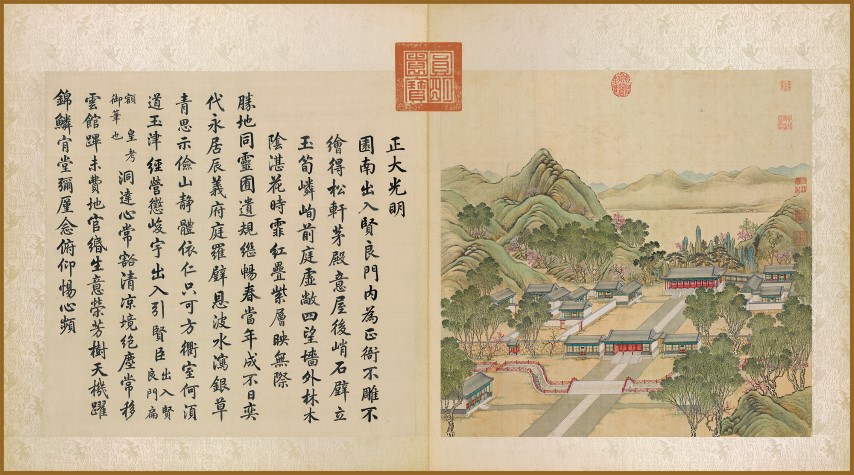 圓明
園寶
正大光明
園南出入賢良門內為正衙不雕不
繪得松軒茅殿意屋後峭石壁立
玉筍嶙峋前庭虛敞四望墻外林木
陰湛花時霏紅疊紫層映無際
勝地同靈囿遺規繼暢春當年成不日奕
代永居辰義府庭羅壁恩波水瀉銀草
青思示儉山靜體依仁只可方衢室何湏
道玉津經營懲峻宇出入引賢臣出入賢良門扁
額皇考御筆也洞達心常豁清凉境絕塵常移
雲館蹕未費地官緡生意榮芳樹天機躍
錦鱗肎堂彌厪念俯仰惕心頻